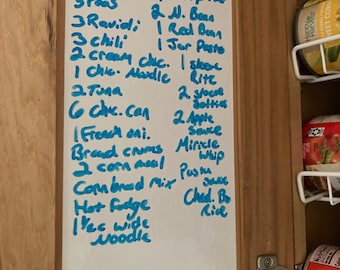 3 Peas
3 Ravioli
3 Chili
2 Cream Chic.
1 Chic. Noodle
2 Tuna
6 Chic. Can
1 French oni.
Bread crumbs
2 corn meal
Corn bread mix
Hot Fudge
1 Ex wide
Noodle
2 N. Bean
1 Red Bean
1 Jar Paste
1 stove
Rite
2 stove
2 Apple
Sauce
Miracle
Whip
Pasta
Sauce
Ched. Br
Rice